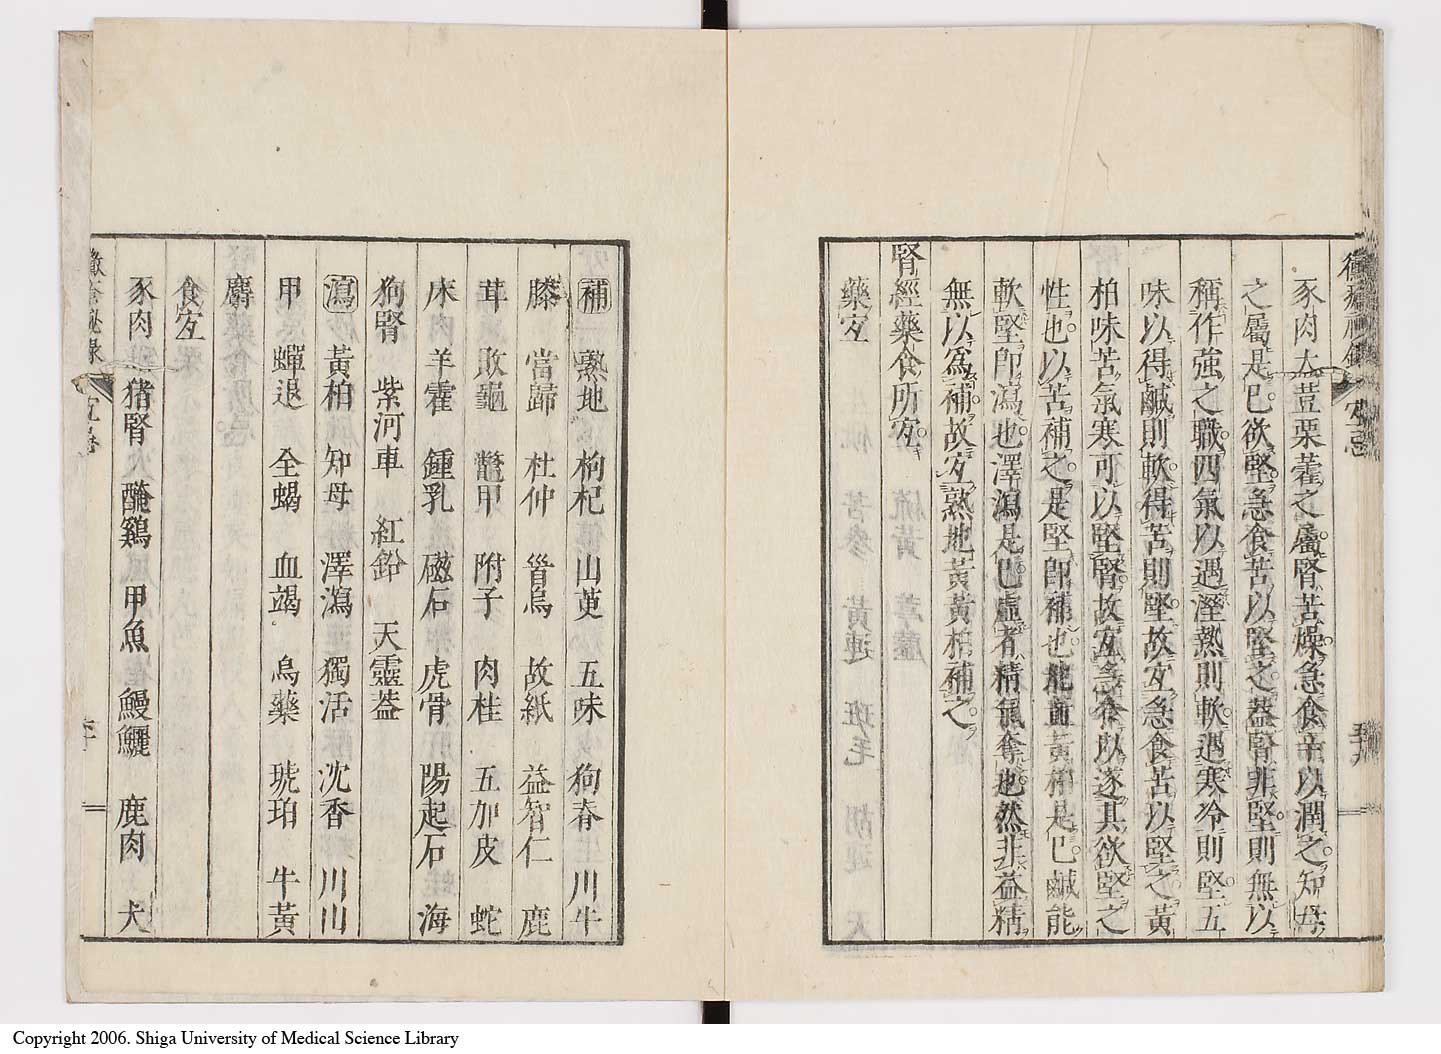 豕肉大荳栗藿之屬腎苦燥急食辛以潤之知母
之屬是巳欲堅急食苦以堅之蓋腎非堅則無以
稱作強之職四氣以遇溼熱則軟遇寒冷則堅五
味以得鹹則軟得苦則堅故宐急食苦以堅之黃
柏味苦氣寒可以堅腎故宐急食以遂其欲堅之
性也以苦補之是堅卽補也地黃黃柏是巳鹹能
軟堅卽瀉也澤瀉是巳虛者精氣奪也然非益精
無以爲補故宐熟地黃黃柏補之
腎經藥食所宐
藥宐
補 熟地 枸杞 山萸 五味 狗脊 川牛
膝 當歸 杜仲 首烏 故紙 益智仁 鹿
茸 敗龜 鼈甲 附子 肉桂 五加皮 蛇
床 羊藿 鍾乳 磁石 虎骨 陽起石 海
狗腎 紫河車 紅鉛 天靈蓋
瀉 黃柏 知母 澤瀉 獨活 沈香 川山
甲 蟬退 全蝎 血竭 烏藥 琥珀 牛黃
麝
食宐
豕肉 猪腎 火醃 鷄 甲魚 鰻鱺 鹿肉 犬
Copyright 2006. Shiga University of Medical Science Library